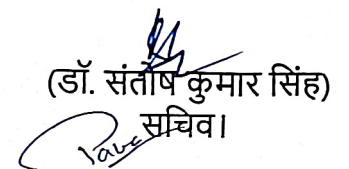 (डॉ. संतोष कुमार सिंह)
सचिव।